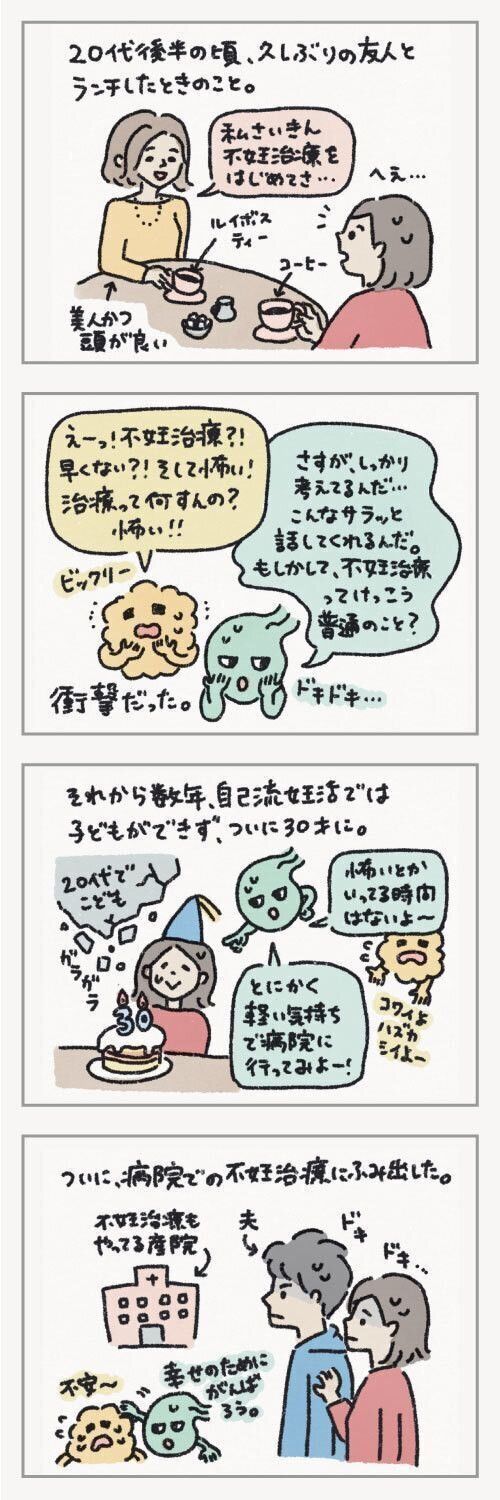 20代後半の頃、久しぶりの友人と
ランチしたときのこと。
私さいきん
不妊治療を
はじめてさ…
へぇ…
ルイボス
ティー
コーヒー
美人かつ
頭が良い
えーっ！不妊治療？！
早くない？！そして怖い！
治療って何すんの？
怖い！！
さすが、しっかり
考えてるんだ…
こんなサラッと
話してくれるんだ。
もしかして、不妊治療
ってけっこう
普通のこと？
ビックリー
衝撃だった。
ドキドキ…
それから数年、自己流妊活では
子どもができず、ついに30才に。
20代で
こども
ガラガラ
30
怖いとか
いってる時間
はないよ〜
とにかく
軽い気持ち
で病院に
行ってみよー！
コワイよ
ハズカ
シイよー
ついに、病院での不妊治療にふみ出した。
不妊治療も
やってる産院
夫
ドキ
ドキ…
不安〜
幸せのために
がんば
ろう。